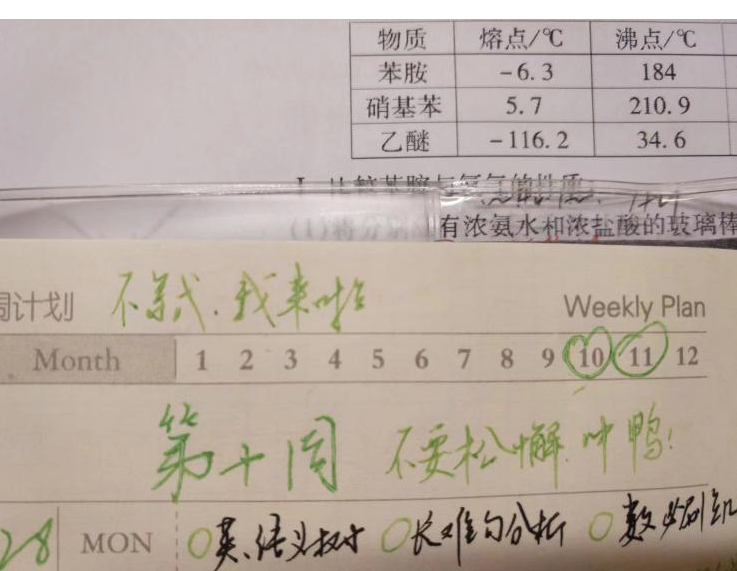 物质 熔点/℃ 沸点/℃
苯胺 －6.3 184
硝基苯 5.7 210.9
乙醚 －116.2 34.6
有浓氨水和浓盐酸的玻璃棒
周计划 我来啦 Weekly Plan
Month 1 2 3 4 5 6 7 8 9 10 11 12
第十周 不要松懈 冲鸭!
28 MON 英 长难句分析